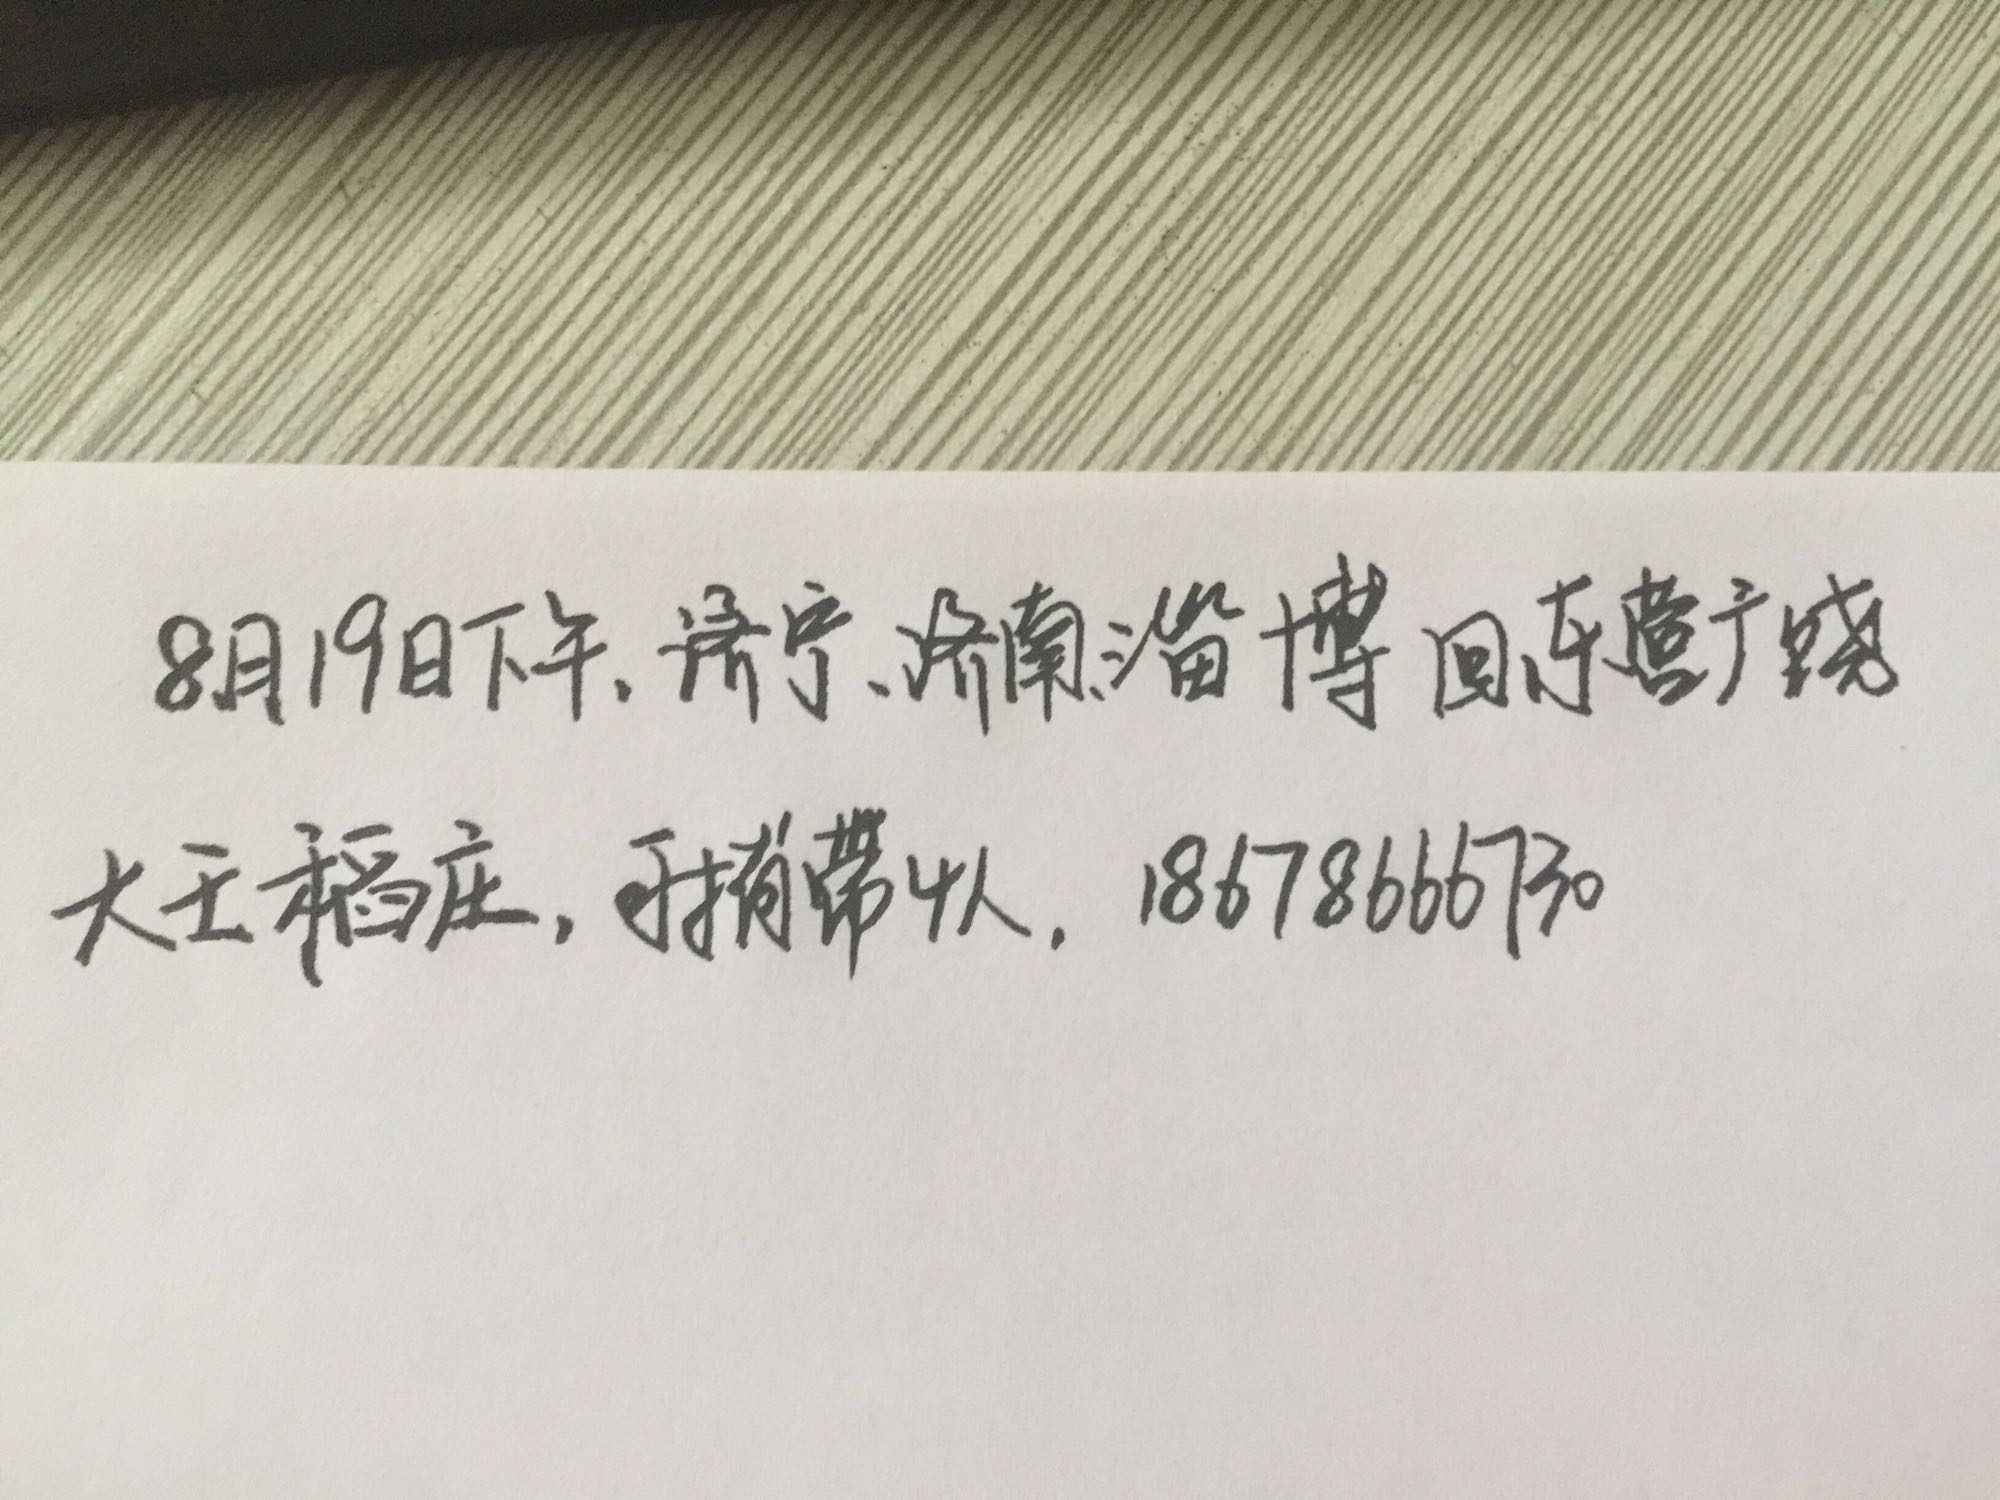 8月19日下午、济宁、济南、淄博回东营广饶
大王稻庄，可捎带4人，18678666730